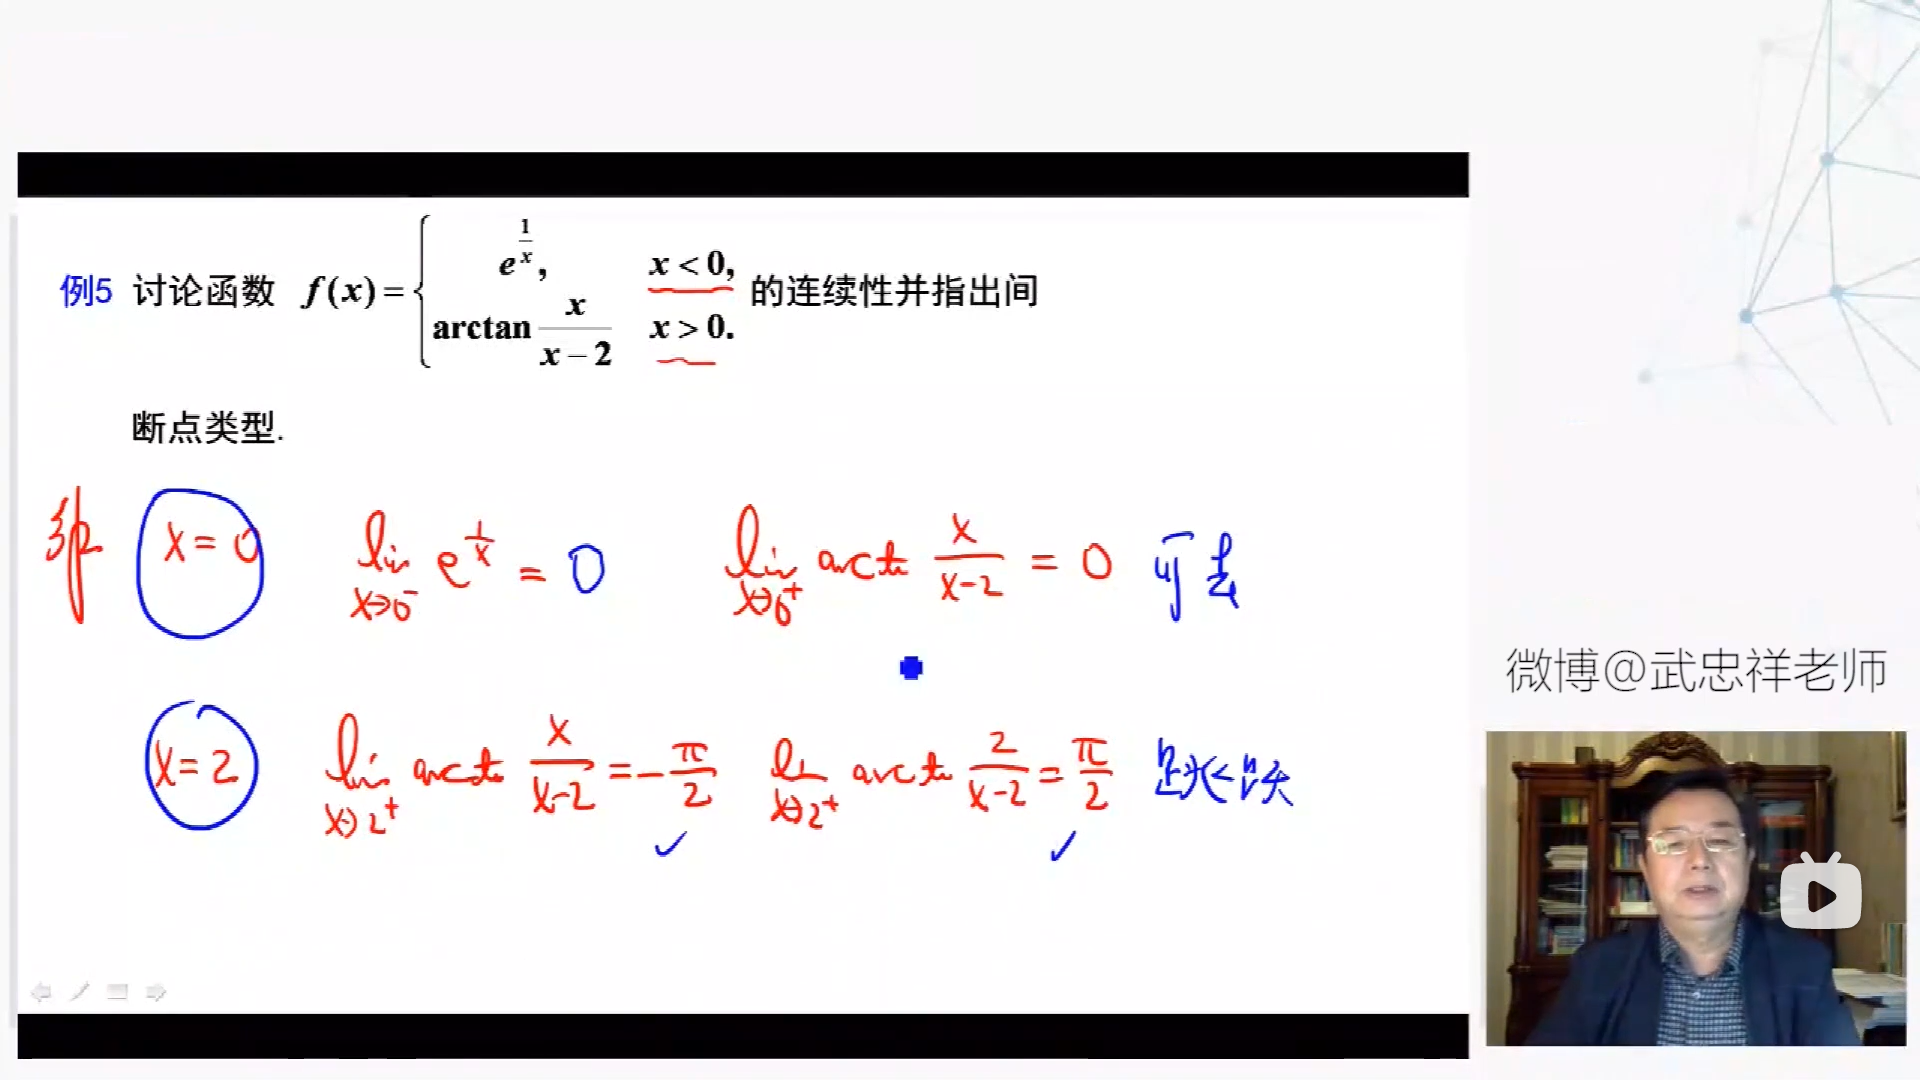 例5 讨论函数 f(x) = { e^{1/x}, x < 0, arctan x/(x−2) x > 0. 的连续性并指出间
断点类型.
解 x=0 lim_{x→0⁻} e^{1/x} = 0 lim_{x→0⁺} arctan x/(x-2) = 0 可去
x=2 lim_{x→2⁺} arctan x/(x-2) = -π/2 lim_{x→2⁺} arctan 2/(x-2) = π/2 跳跃
微博@武忠祥老师